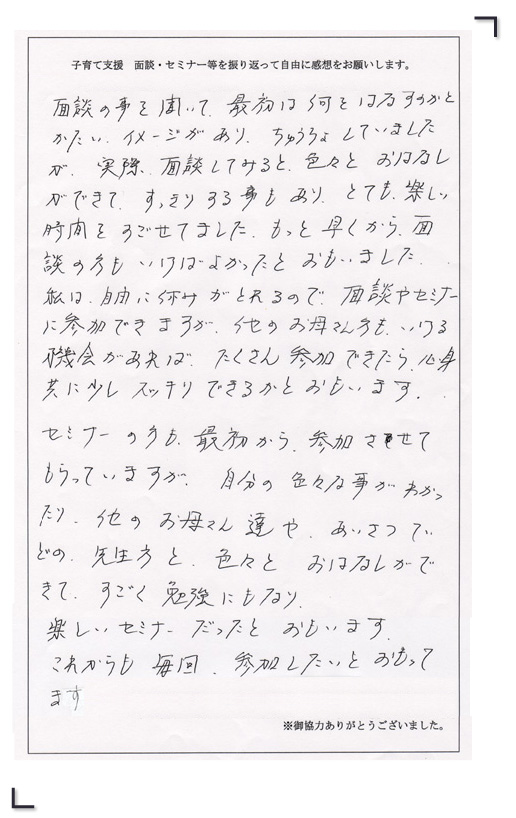 子育て支援　面談・セミナー等を振り返って自由に感想をお願いします。
面談の事を聞いて、最初は何をはなすのかと
かたい、イメージがあり、ちゅうちょしていました
が、実際、面談してみると、色々とおはなし
ができて、すっきりする事もあり、とても、楽しい
時間をすごせてました。もっと早くから、面
談の方もいけばよかったとおもいました。
私は、自由に休みがとれるので、面談やセミナー
に参加できますが、他のお母さん方も、いける
機会があれば、たくさん参加できたら、心身
共に少しスッキリできるかとおもいます。
セミナーの方も、最初から、参加させて
もらっていますが、自分の色々な事がわかっ
たり、他のお母さん達や、あいさつてい
どの、先生方と、色々とおはなしがで
きて、すごく勉強にもなり、
楽しいセミナーだったとおもいます。
これからも毎回、参加したいとおもって
ます
※御協力ありがとうございました。